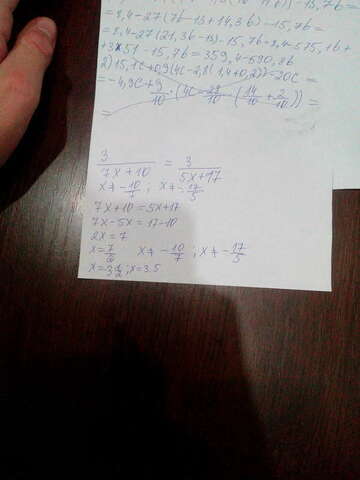 = 8,4-27(7b-13+14,3b)-15,7b=
= 8,4-27(21,3b-13)-15,7b=8,4-575,1b+
+351-15,7b=359,4-590,8b
2) 15,1c+0,9(4c-2,8(1,4+0,2))-20c=
= -4,9c+9/10·(4c-28/10·(14/10+2/10))=
=
3/7x+10 = 3/5x+17
x≠-10/7; x≠-17/5
7x+10=5x+17
7x-5x=17-10
2x=7
x=7/2 x≠-10/7; x≠-17/5
x=3 1/2; x=3.5